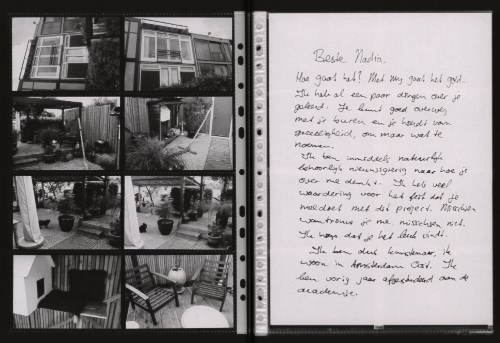 Beste Nadia,
Hoe gaat het? Met mij gaat het goed.
Ik heb al een paar dingen over je
geleerd. Je kunt goed overweg
met je buren en je houdt van
gezelligheid, om maar wat te
noemen.
Ik ben inmiddels natuurlijk
behoorlijk nieuwsgierig naar hoe je
over me denkt. Ik heb veel
waardering voor het feit dat je
meedoet met dit project. Misschien
wantrouw je me, misschien niet.
Ik hoop dat je het leuk vindt.
Ik ben dus kunstenaar, ik
woon in Amsterdam Oost. Ik
ben vorig jaar afgestudeerd aan de
academie.